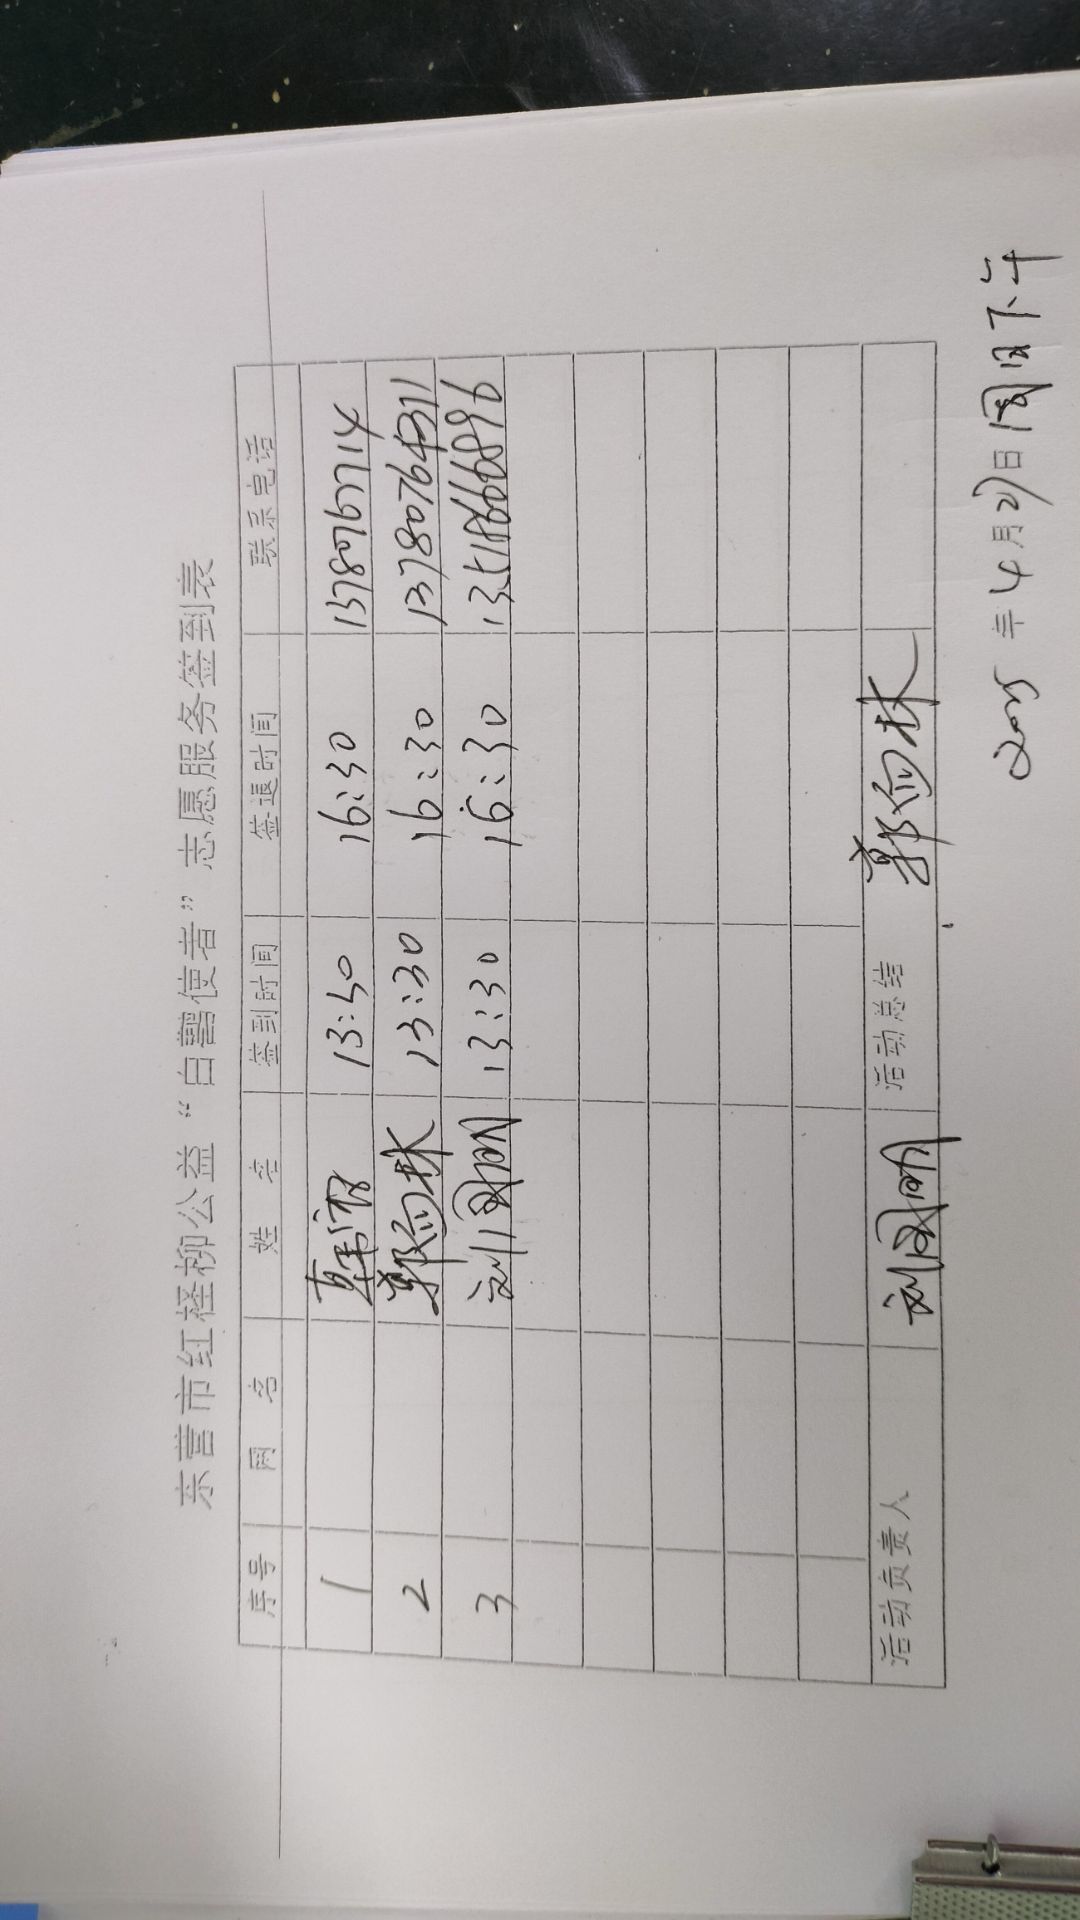 东营市红柽柳公益“白鹭使者”志愿服务签到表
序号 网 名 姓 名 签到时间 签退时间 联系电话
1 13:30 16:30
2 13:30 16:30 13780764311
3 刘国明 13:30 16:30
活动负责人 刘国明 活动总结
2025年4月27日周日下午